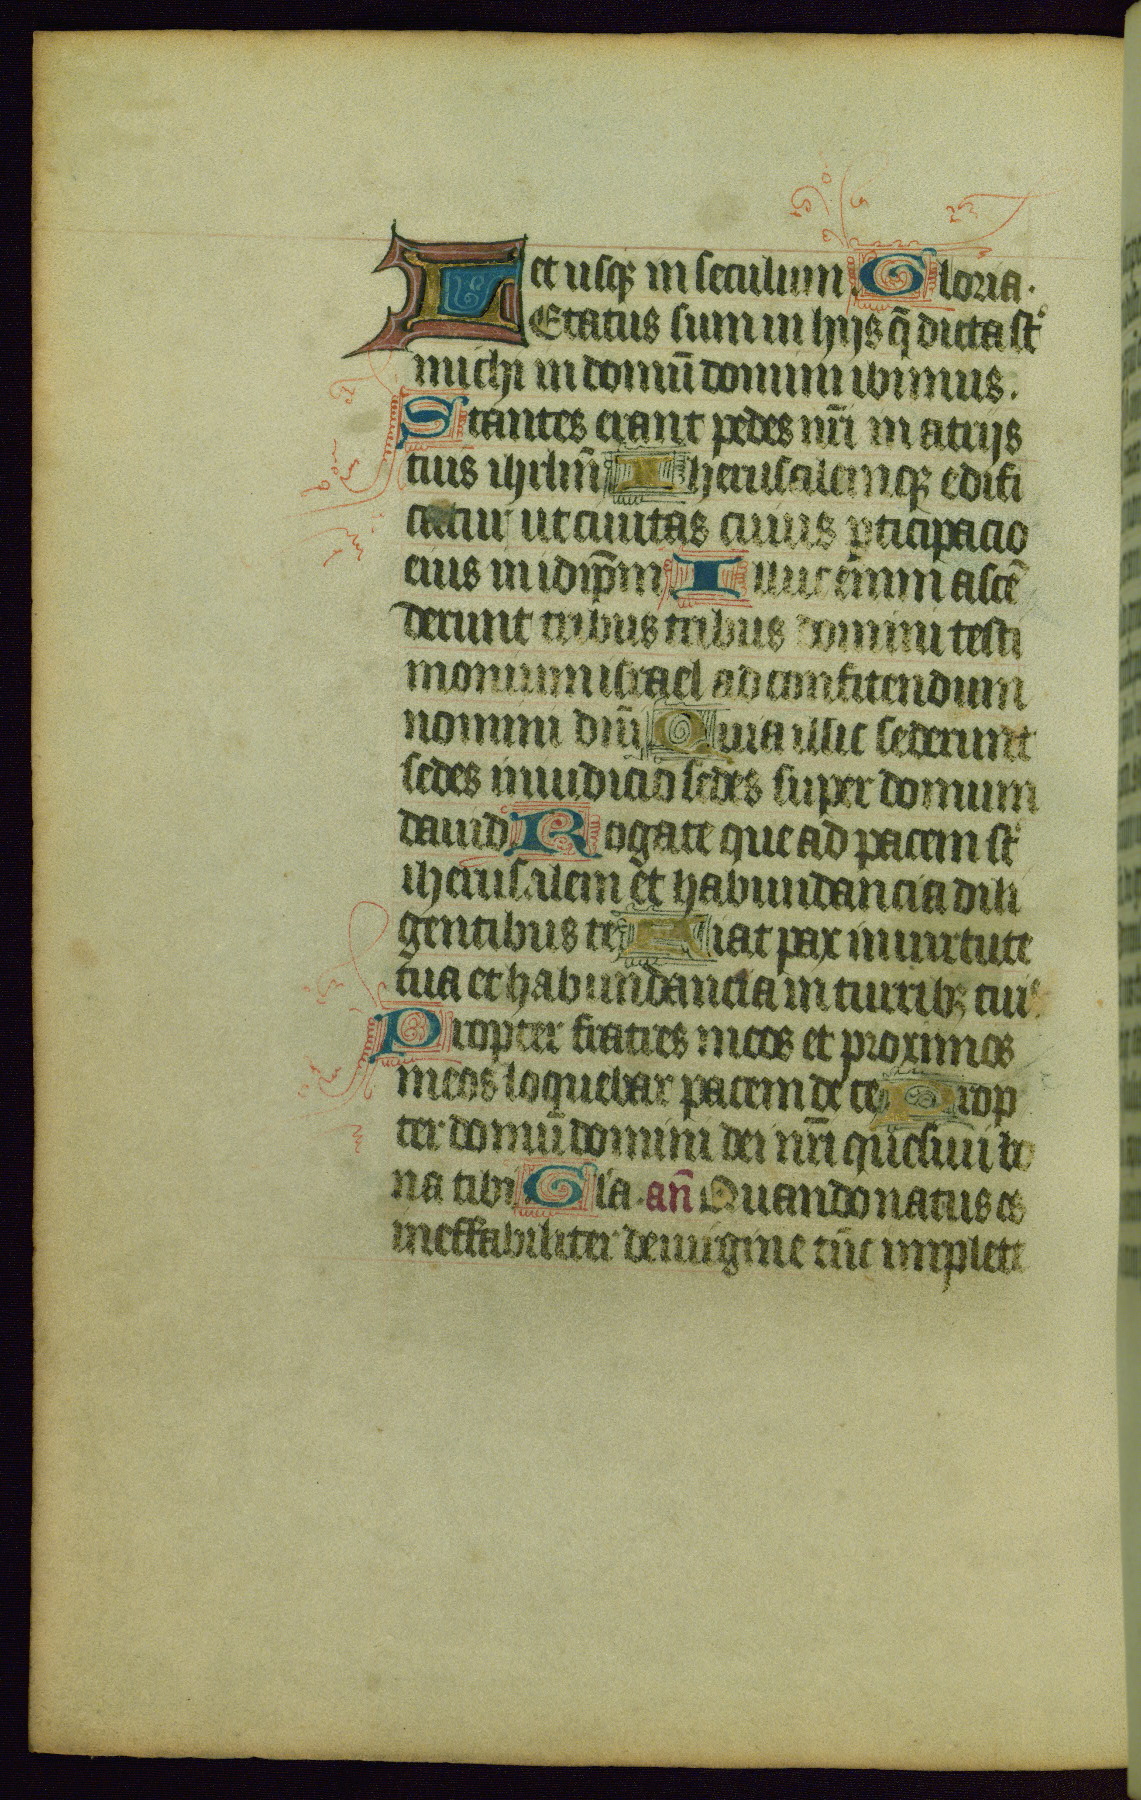 et usq in seculum Gloria.
LEtatus sum in hijs q̄ dicta st
michi in domū domini ibimus.
Stantes erant pedes nr̄i in atrijs
tuis ihrlm̄ Iherusalem q edifi
catur ut ciuitas cuius pticipacio
eius in idip̄m Illuc enim ascē
derunt tribus tribus domini testi
monium israel ad confitendum
nomini dn̄i Quia illic sederunt
sedes in iudicio sedes super domum
dauid Rogate que ad pacem st
iherusalem et habundancia dili
gentibus te Fiat pax in uirtute
tua et habundancia in turribz tuis
Propter fratres meos et proximos
meos loquebar pacem de te Prop
ter domū domini dei nr̄i quesiui bo
na tibi Gla. an̄ Quando natus es
ineffabiliter de uirgine tūc implete